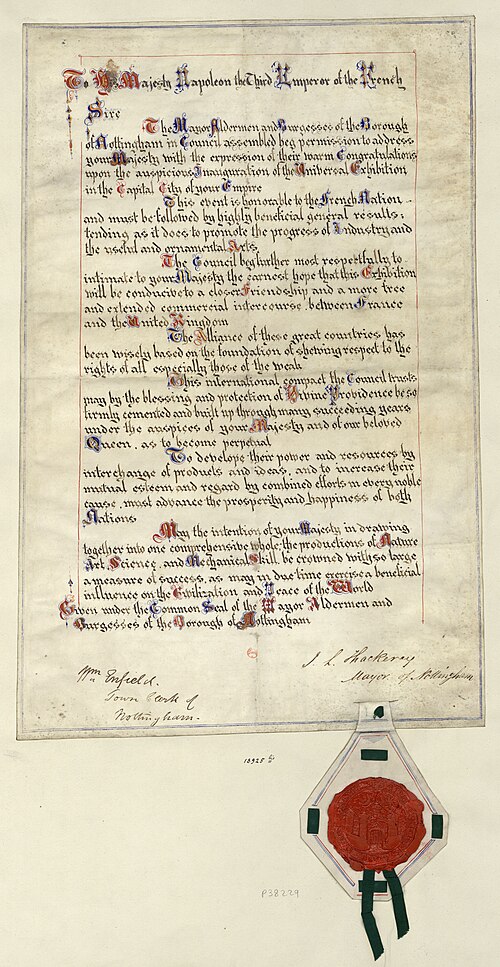 To His Majesty Napoleon the Third Emperor of the French
Sire
The Mayor Aldermen and Burgesses of the Borough
of Nottingham in Council assembled beg permission to address
your Majesty with the expression of their warm Congratulations
upon the auspicious Inauguration of the Universal Exhibition
in the Capital City of your Empire
This event is honorable to the French Nation
and must be followed by highly beneficial general results;
tending as it does to promote the progress of Industry and
the useful and ornamental Arts.
The Council beg further most respectfully to
intimate to your Majesty the earnest hope that this Exhibition
will be conducive to a closer Friendship and a more free
and extended commercial intercourse between France
and the United Kingdom
The Alliance of these great countries has
been wisely based on the foundation of shewing respect to the
rights of all especially those of the weak
This international compact the Council trusts
may by the blessing and protection of Divine Providence be so
firmly cemented and built up through many succeeding years
under the auspices of your Majesty and of our beloved
Queen, as to become perpetual
To develope their power and resources by
interchange of products and ideas, and to increase their
mutual esteem and regard by combined efforts in every noble
cause, must advance the prosperity and happiness of both
Nations
May the intention of your Majesty in drawing
together into one comprehensive whole, the productions of Nature
Art, Science, and Mechanical Skill, be crowned with so large
a measure of success, as may in due time exercise a beneficial
influence on the Civilization and Peace of the World
Given under the Common Seal of the Mayor Aldermen and
Burgesses of the Borough of Nottingham
Wm Enfield.
Town Clerk of
Nottingham.
J. L. Thackeray
Mayor of Nottingham
10925
P38229